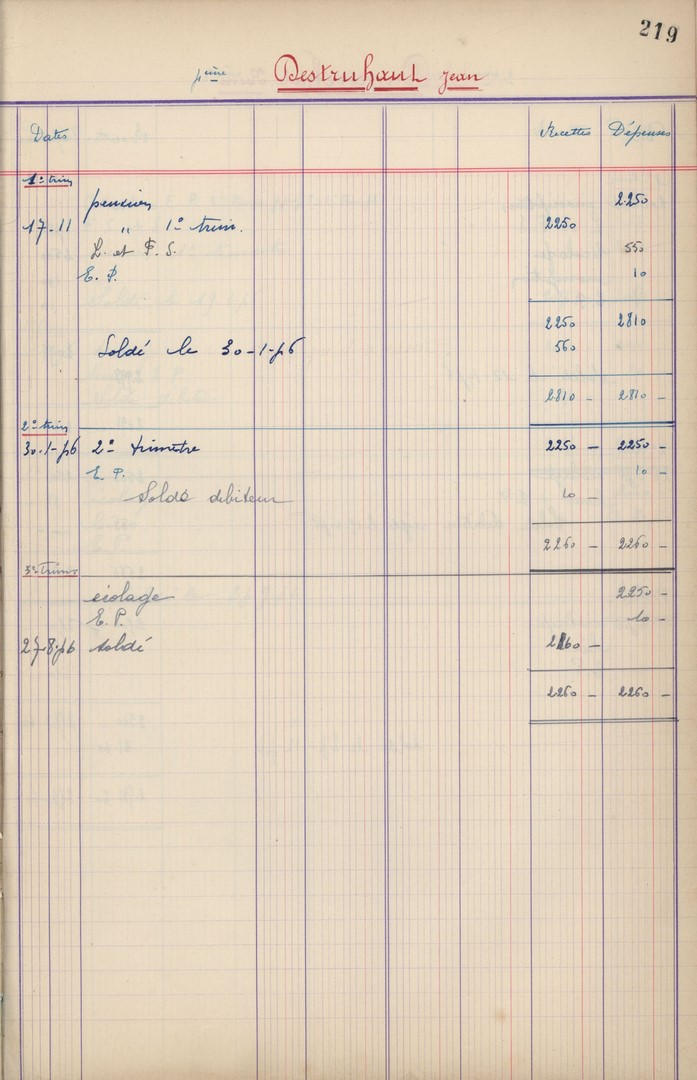 219
Destruhaut Jean
Dates Recettes Dépenses
1e trim
pension 2250
17-11 " 1e trim. 2250
L. et F. S. 550
E. P. 10
2250 2810
Soldé le 30-1-56 560
2810 - 2810 -
2e trim
30-1-56 2e trimestre 2250 - 2250 -
E. P. 10 -
Solde débiteur 10 -
2260 - 2260 -
3e trim
écolage 2250 -
E. P. 10 -
27-8-56 soldé 2260 -
2260 - 2260 -